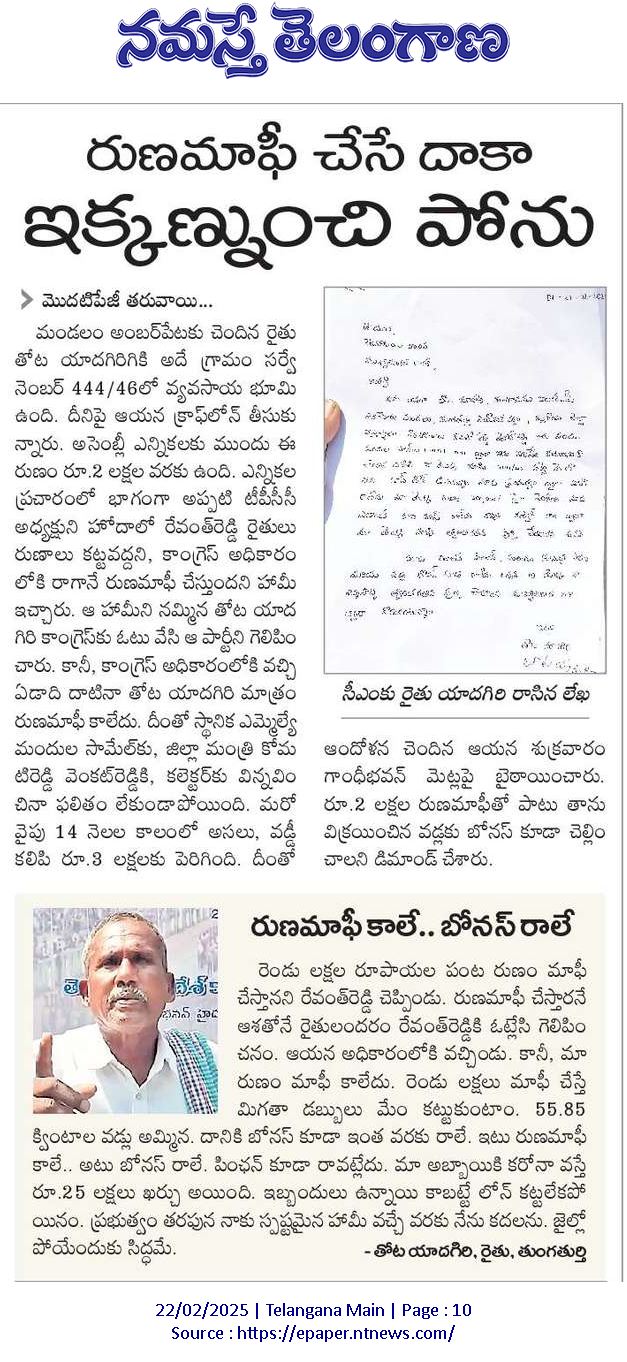 నమస్తే తెలంగాణ
రుణమాఫీ చేసే దాకా
ఇక్కణ్నుంచి పోను
మొదటిపేజీ తరువాయి...
మండలం అంబర్‌పేటకు చెందిన రైతు
తోట యాదగిరిగికి అదే గ్రామం సర్వే
నెంబర్ 444/46లో వ్యవసాయ భూమి
ఉంది. దీనిపై ఆయన క్రాఫ్‌లోన్ తీసుకు
న్నారు. అసెంబ్లీ ఎన్నికలకు ముందు ఈ
రుణం రూ.2 లక్షల వరకు ఉంది. ఎన్నికల
ప్రచారంలో భాగంగా అప్పటి టీపీసీసీ
అధ్యక్షుని హోదాలో రేవంత్‌రెడ్డి రైతులు
రుణాలు కట్టవద్దని, కాంగ్రెస్ అధికారం
లోకి రాగానే రుణమాఫీ చేస్తుందని హామీ
ఇచ్చారు. ఆ హామీని నమ్మిన తోట యాద
గిరి కాంగ్రెస్‌కు ఓటు వేసి ఆ పార్టీని గెలిపిం
చారు. కానీ, కాంగ్రెస్ అధికారంలోకి వచ్చి
ఏడాది దాటినా తోట యాదగిరి మాత్రం
రుణమాఫీ కాలేదు. దీంతో స్థానిక ఎమ్మెల్యే
మందుల సామేల్‌కు, జిల్లా మంత్రి కోమ
టిరెడ్డి వెంకట్‌రెడ్డికి, కలెక్టర్‌కు విన్నవిం
చినా ఫలితం లేకుండాపోయింది. మరో
వైపు 14 నెలల కాలంలో అసలు, వడ్డీ
కలిపి రూ.3 లక్షలకు పెరిగింది. దీంతో
సీఎంకు రైతు యాదగిరి రాసిన లేఖ
ఆందోళన చెందిన ఆయన శుక్రవారం
గాంధీభవన్ మెట్లపై బైఠాయించారు.
రూ.2 లక్షల రుణమాఫీతో పాటు తాను
విక్రయించిన వడ్లకు బోనస్ కూడా చెల్లిం
చాలని డిమాండ్ చేశారు.
రుణమాఫీ కాలే.. బోనస్ రాలే
రెండు లక్షల రూపాయల పంట రుణం మాఫీ
చేస్తానని రేవంత్‌రెడ్డి చెప్పిండు. రుణమాఫీ చేస్తారనే
ఆశతోనే రైతులందరం రేవంత్‌రెడ్డికి ఓట్లేసి గెలిపిం
చనం. ఆయన అధికారంలోకి వచ్చిండు. కానీ, మా
రుణం మాఫీ కాలేదు. రెండు లక్షలు మాఫీ చేస్తే
మిగతా డబ్బులు మేం కట్టుకుంటాం. 55.85
క్వింటాల వడ్లు అమ్మిన. దానికి బోనస్ కూడా ఇంత వరకు రాలే. ఇటు రుణమాఫీ
కాలే.. అటు బోనస్ రాలే. పింఛన్ కూడా రావట్లేదు. మా అబ్బాయికి కరోనా వస్తే
రూ.25 లక్షలు ఖర్చు అయింది. ఇబ్బందులు ఉన్నాయి కాబట్టే లోన్ కట్టలేకపో
యినం. ప్రభుత్వం తరపున నాకు స్పష్టమైన హామీ వచ్చే వరకు నేను కదలను. జైల్లో
పోయేందుకు సిద్ధమే.
- తోట యాదగిరి, రైతు, తుంగతుర్తి
22/02/2025 | Telangana Main | Page : 10
Source : https://epaper.ntnews.com/